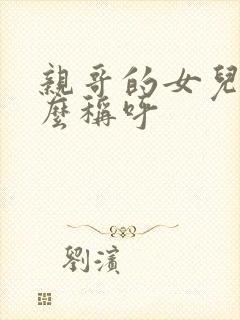 親哥的女兒
麼稱呼
劉濱